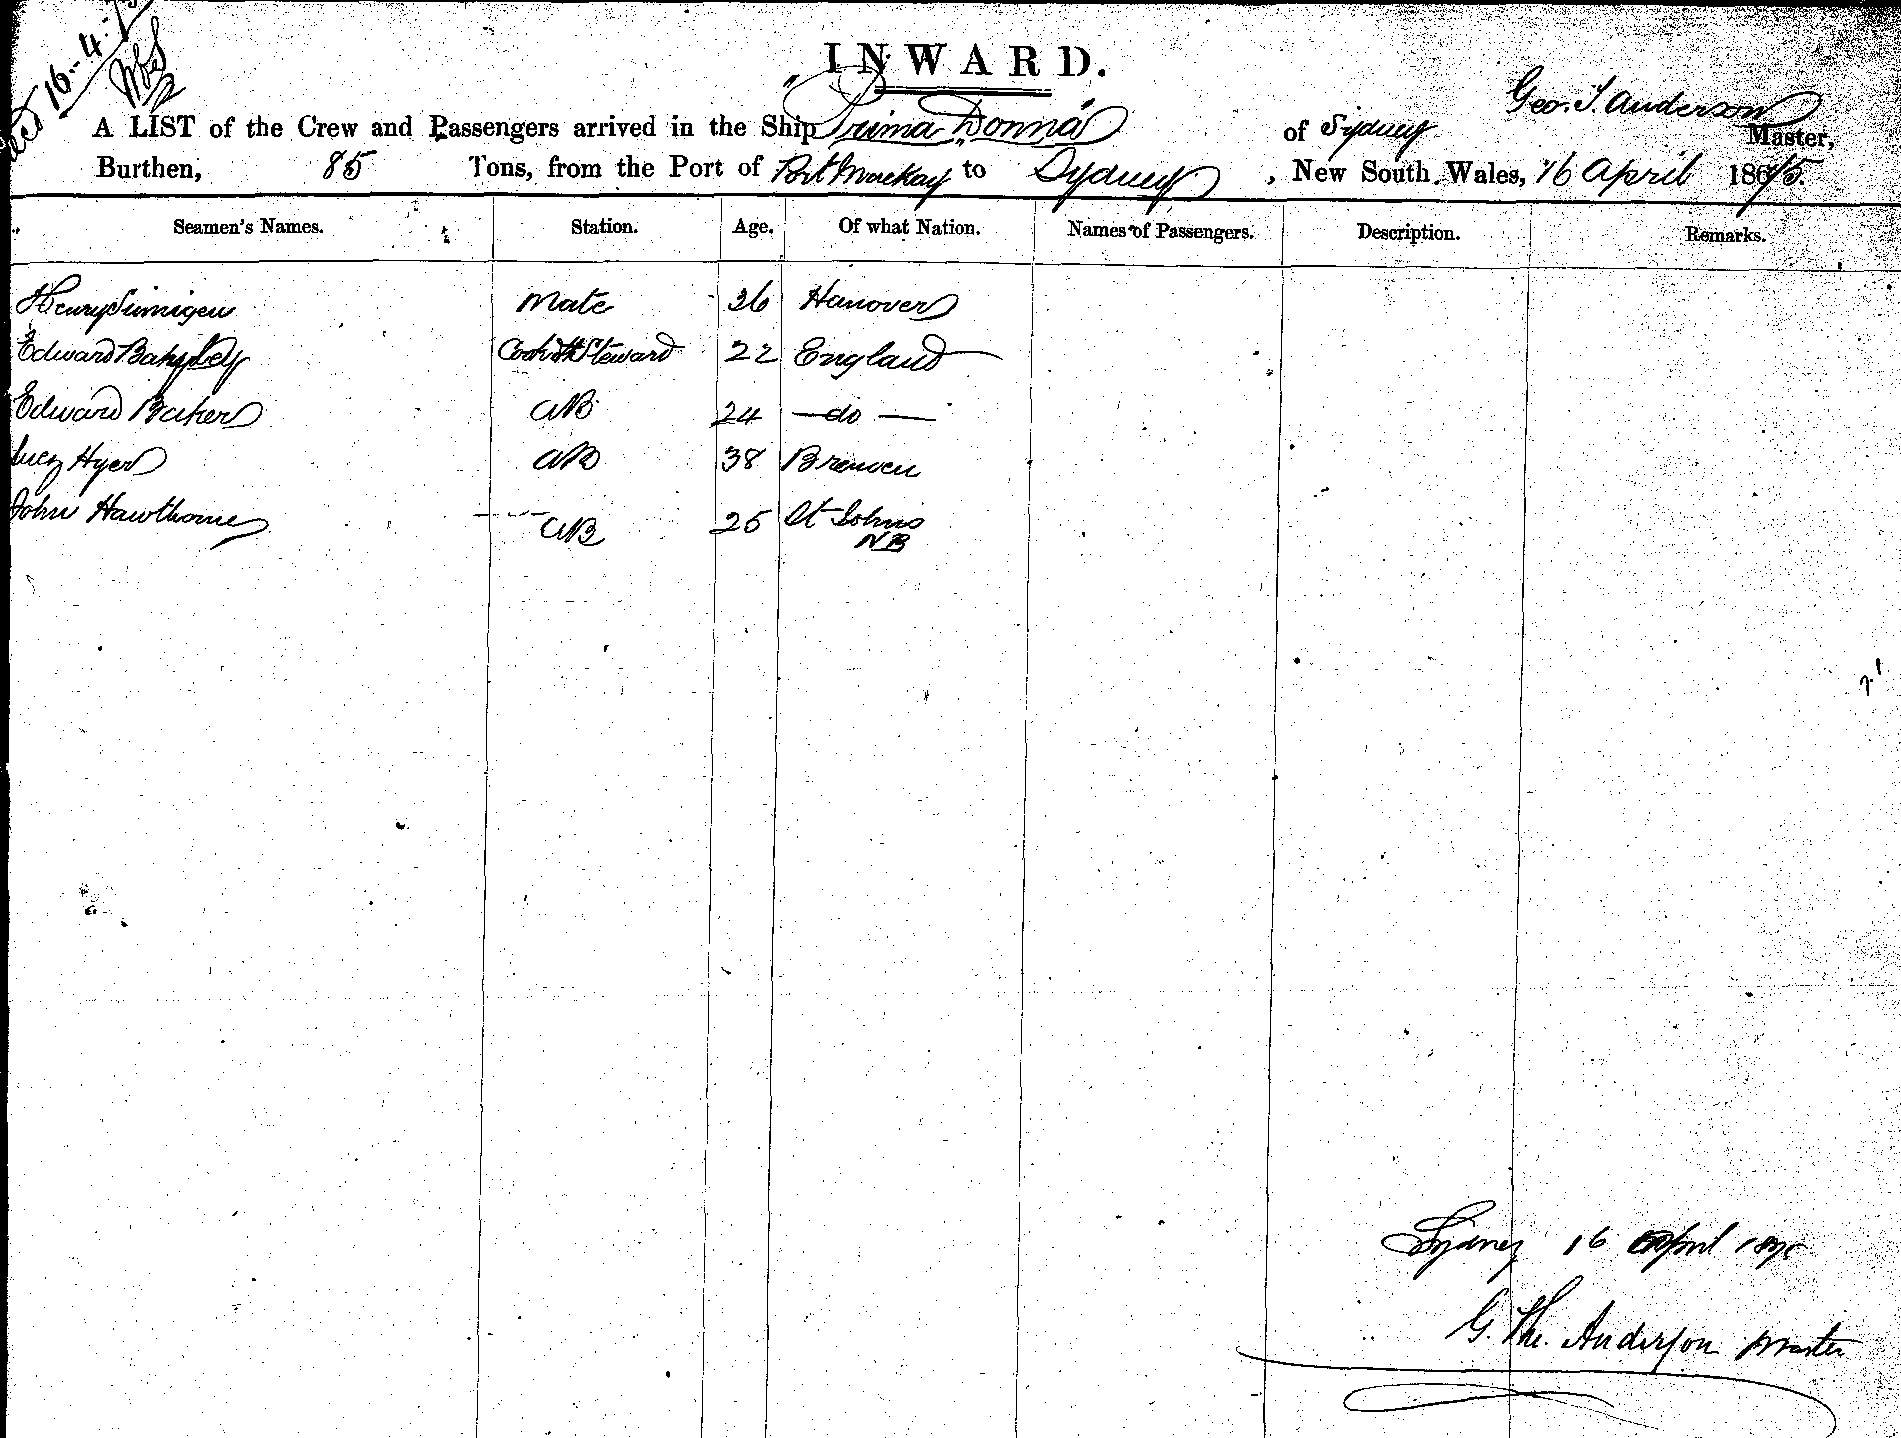 16-4-7
INWARD.
Geo. T. Anderson
A LIST of the Crew and Passengers arrived in the Ship "Prima Donna" of Sydney Master,
Burthen, 85 Tons, from the Port of Port Mackay to Sydney, New South Wales, 16 April 1875.
Seamen's Names. Station. Age. Of what Nation. Names of Passengers. Description. Remarks.
Henry Simigen Mate 36 Hanover
Edward Steward 22 England
Edward Baker AB 24 — do —
Hyer AB 38 Bremen
John Hawthorne AB 25 St Johns
NB
Sydney 16 April 1875
G. The. Anderson Master